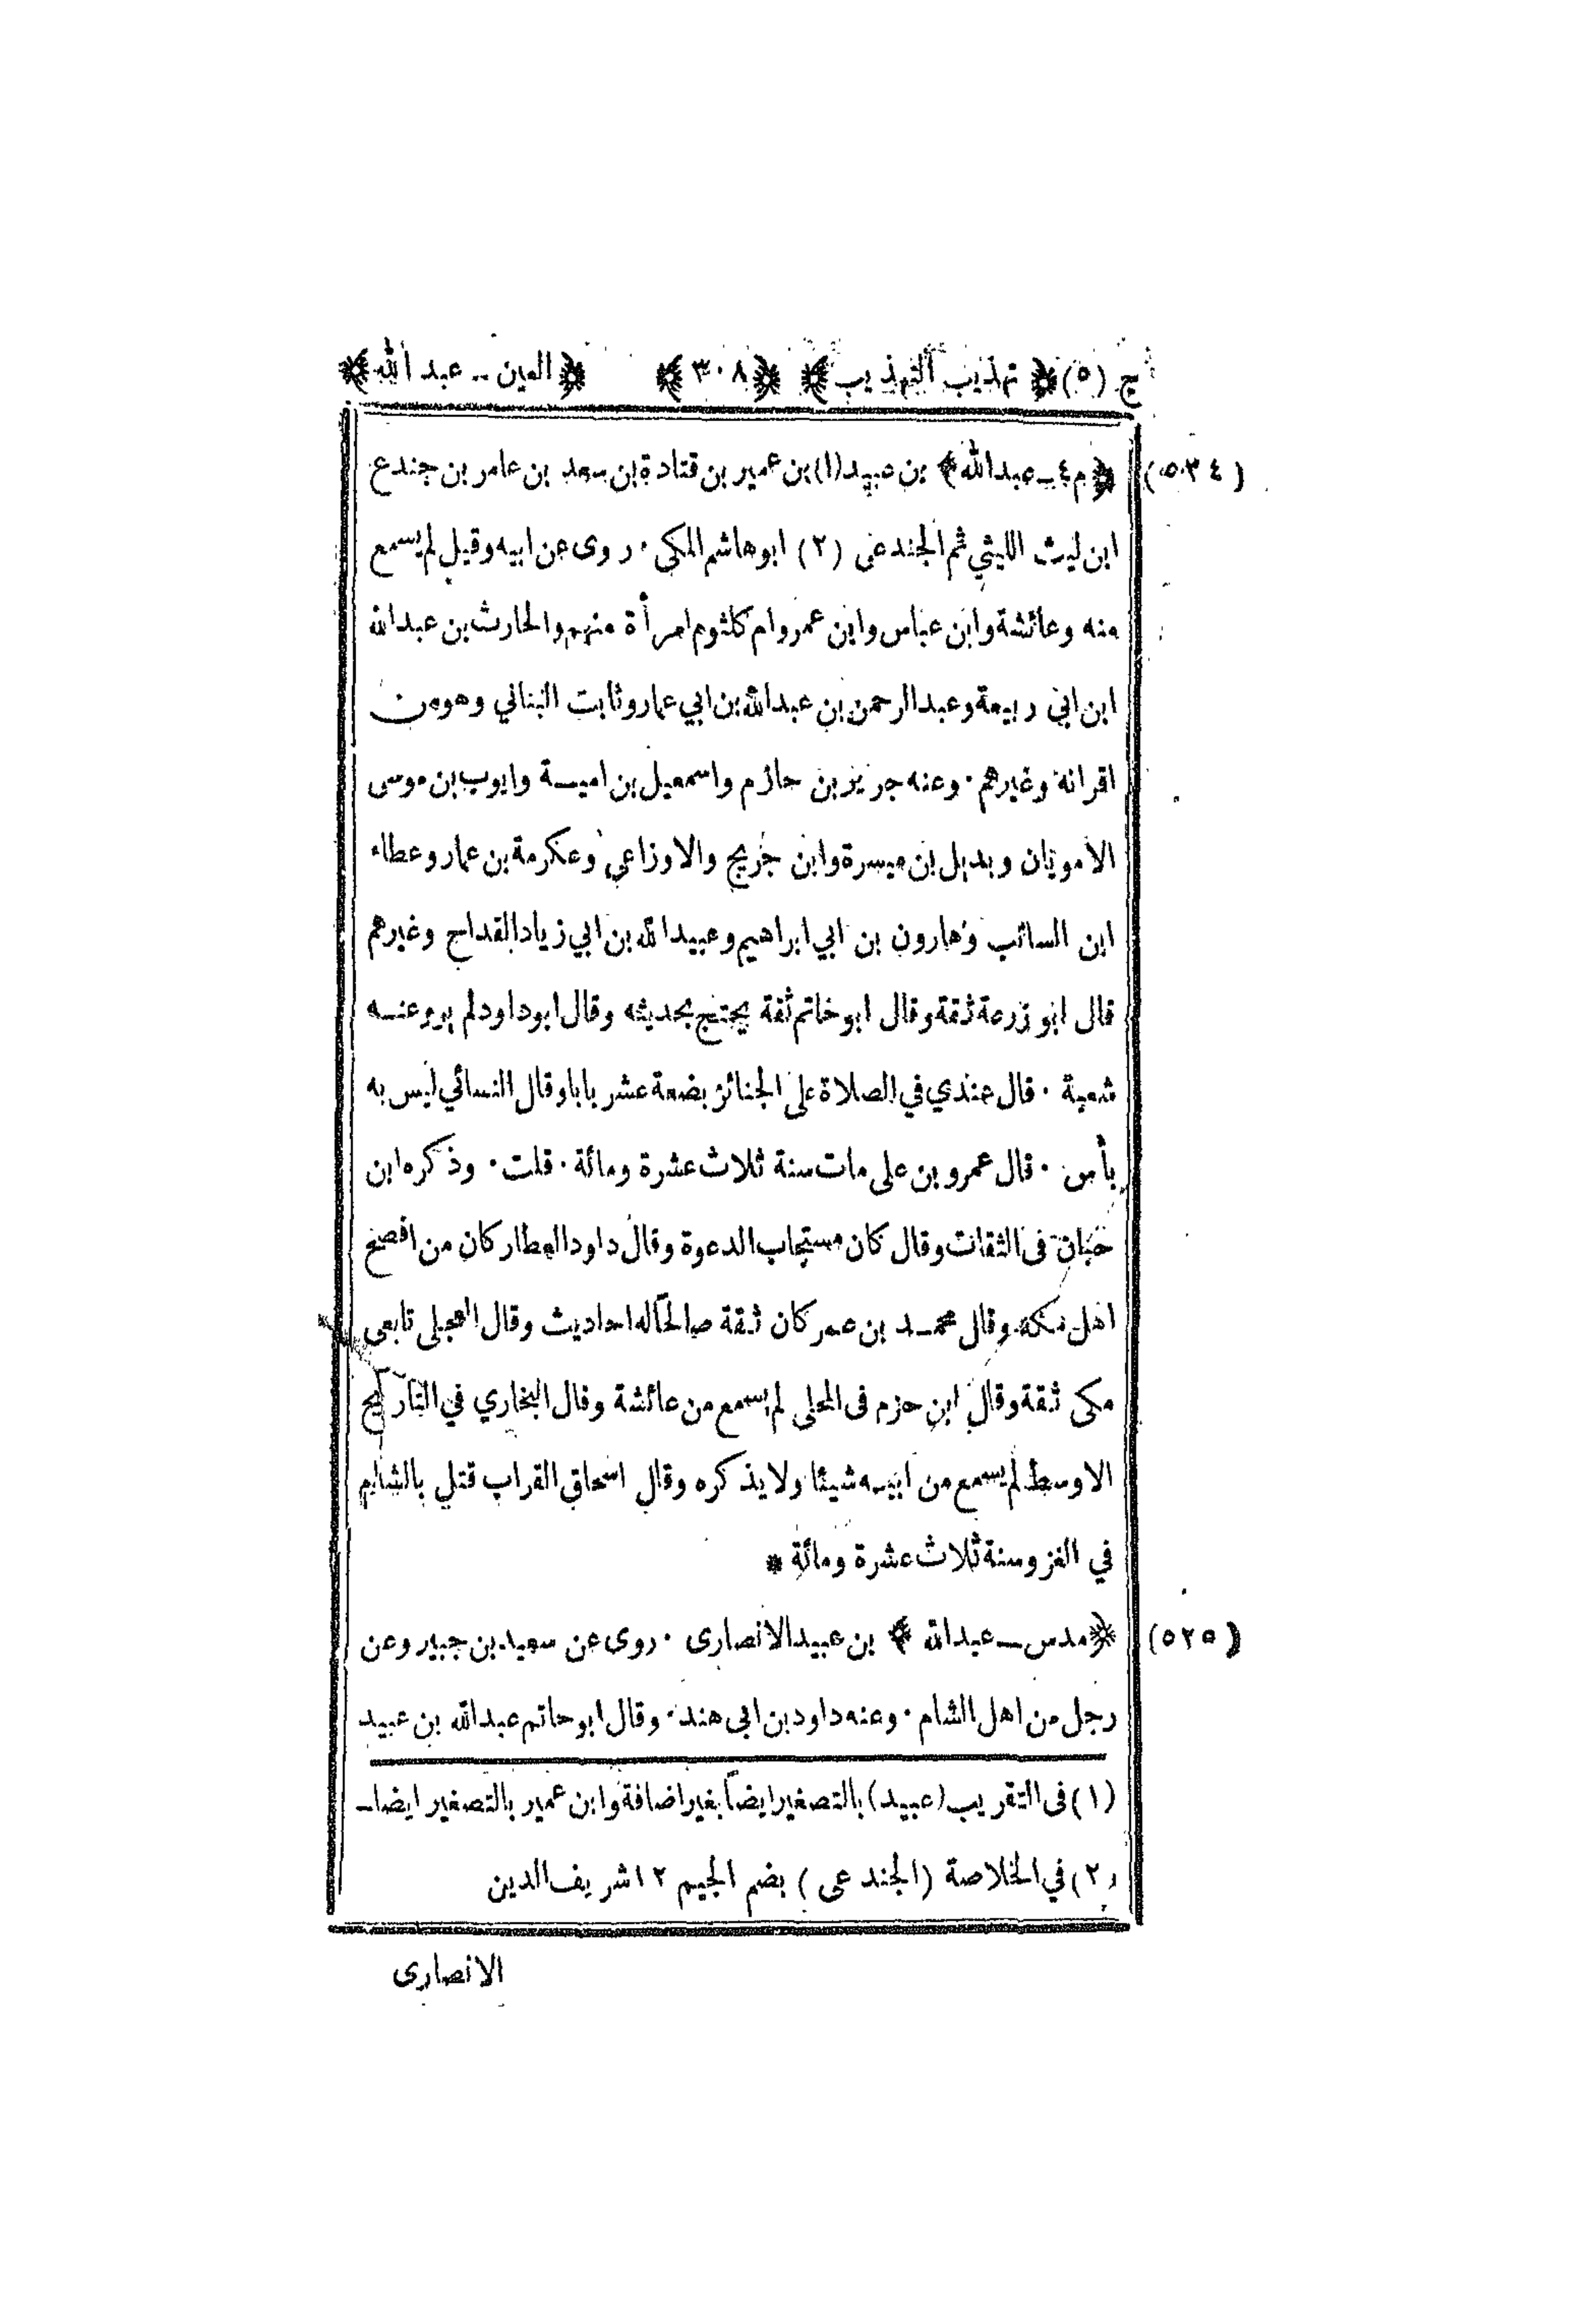 ج (٥) ﴿ تهذيب التهذيب ﴾ ﴿ ٣٠٨ ﴾ ﴿ العين ـ عبد الله ﴾
(٥٣٤) ﴿ م ٤ ـ عبد الله ﴾ بن عبيد (١) بن عمير بن قتادة بن سعد بن عامر بن جندع
ابن ليث الليثي ثم الجندعى (٢) ابو هاشم المكى ٠ روى عن ابيه وقيل لم يسمع
منه وعائشة وابن عباس وابن عمر وام كلثوم امرأة منهم والحارث بن عبد الله
ابن ابى ربيعة وعبد الرحمن بن عبد الله بن ابي عمار وثابت البناني وهو من
اقرانه وغيرهم ٠ وعنه جرير بن حازم واسمعيل بن امية وايوب بن موسى
الامويان وبديل بن ميسرة وابن جريج والاوزاعي وعكرمة بن عمار وعطاء
ابن السائب وهارون بن ابي ابراهيم وعبيد الله بن ابي زياد القداح وغيرهم
قال ابو زرعة ثقة وقال ابو حاتم ثقة يحتج بحديثه وقال ابو داود لم يرو عنه
شعبة ٠ قال عندي في الصلاة على الجنائز بضعة عشر بابا وقال النسائي ليس به
بأس ٠ قال عمرو بن على مات سنة ثلاث عشرة ومائة ٠ قلت ٠ وذكره ابن
حبان فى الثقات وقال كان مستجاب الدعوة وقال داود العطار كان من افصح
اهل مكة وقال محمد بن عمر كان ثقة صالحا له احاديث وقال العجلى تابعى
مكى ثقة وقال ابن حزم فى المحلى لم يسمع من عائشة وقال البخاري في التاريخ
الاوسط لم يسمع من ابيه شيئا ولا يذكره وقال اسحاق القراب قتل بالشام
في الغزو سنة ثلاث عشرة ومائة *
(٥٢٥) ﴿ مدس ـ عبد الله ﴾ بن عبيد الانصارى ٠ روى عن سعيد بن جبير وعن
رجل من اهل الشام ٠ وعنه داود بن ابى هند ٠ وقال ابو حاتم عبد الله بن عبيد
(١) فى التقريب (عبيد) بالتصغير ايضاً بغير اضافة وابن عمير بالتصغير ايضا ـ
(٢) في الخلاصة (الجندعى) بضم الجيم ١٢ شريف الدين
الانصارى